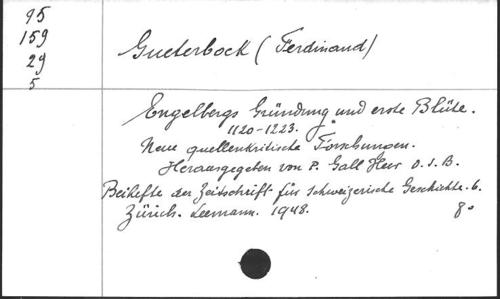 95
159
29
5
Gueterbock (Ferdinand)
Engelbergs Gründung und erste Blüte.
1120-1223.
Neue quellenkritische Forschungen.
Herausgegeben von P. Gall Heer O.S.B.
Beihefte der Zeitschrift für Schweizerische Geschichte. 6.
Zürich. Leemann. 1948. 8°